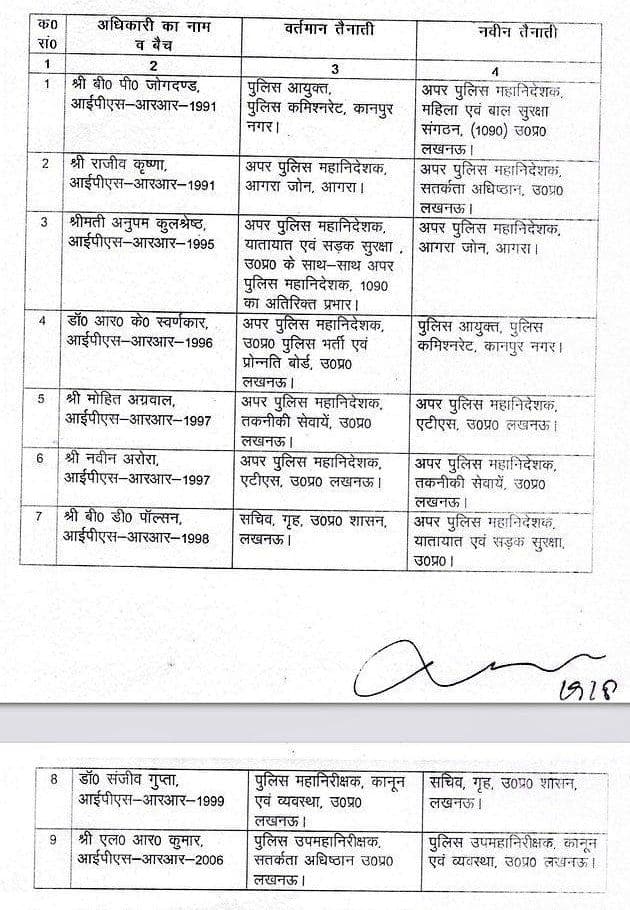 क0 सं0
अधिकारी का नाम व बैच
वर्तमान तैनाती
नवीन तैनाती
1
2
3
4
1
श्री बी0 पी0 जोगदण्ड,
आईपीएस–आरआर–1991
पुलिस आयुक्त,
पुलिस कमिश्नरेट, कानपुर
नगर।
अपर पुलिस महानिदेशक,
महिला एवं बाल सुरक्षा
संगठन, (1090) उ0प्र0
लखनऊ।
2
श्री राजीव कृष्णा,
आईपीएस–आरआर–1991
अपर पुलिस महानिदेशक,
आगरा जोन, आगरा।
अपर पुलिस महानिदेशक,
सतर्कता अधिष्ठान, उ0प्र0
लखनऊ।
3
श्रीमती अनुपम कुलश्रेष्ठ,
आईपीएस–आरआर–1995
अपर पुलिस महानिदेशक,
यातायात एवं सड़क सुरक्षा ,
उ0प्र0 के साथ–साथ अपर
पुलिस महानिदेशक, 1090
का अतिरिक्त प्रभार।
अपर पुलिस महानिदेशक,
आगरा जोन, आगरा।
4
डॉ0 आर0 के0 स्वर्णकार,
आईपीएस–आरआर–1996
अपर पुलिस महानिदेशक,
उ0प्र0 पुलिस भर्ती एवं
प्रोन्नति बोर्ड, उ0प्र0
लखनऊ।
पुलिस आयुक्त, पुलिस
कमिश्नरेट, कानपुर नगर।
5
श्री मोहित अग्रवाल,
आईपीएस–आरआर–1997
अपर पुलिस महानिदेशक,
तकनीकी सेवायें, उ0प्र0
लखनऊ।
अपर पुलिस महानिदेशक,
एटीएस, उ0प्र0 लखनऊ।
6
श्री नवीन अरोरा,
आईपीएस–आरआर–1997
अपर पुलिस महानिदेशक,
एटीएस, उ0प्र0 लखनऊ।
अपर पुलिस महानिदेशक,
तकनीकी सेवायें, उ0प्र0
लखनऊ।
7
श्री बी0 डी0 पॉल्सन,
आईपीएस–आरआर–1998
सचिव, गृह, उ0प्र0 शासन,
लखनऊ।
अपर पुलिस महानिदेशक,
यातायात एवं सड़क सुरक्षा,
उ0प्र0।
8
डॉ0 संजीव गुप्ता,
आईपीएस–आरआर–1999
पुलिस महानिरीक्षक, कानून
एवं व्यवस्था, उ0प्र0
लखनऊ।
सचिव, गृह, उ0प्र0 शासन,
लखनऊ।
9
श्री एल0 आर0 कुमार,
आईपीएस–आरआर–2006
पुलिस उपमहानिरीक्षक,
सतर्कता अधिष्ठान उ0प्र0
लखनऊ।
पुलिस उपमहानिरीक्षक, कानून
एवं व्यवस्था, उ0प्र0 लखनऊ।